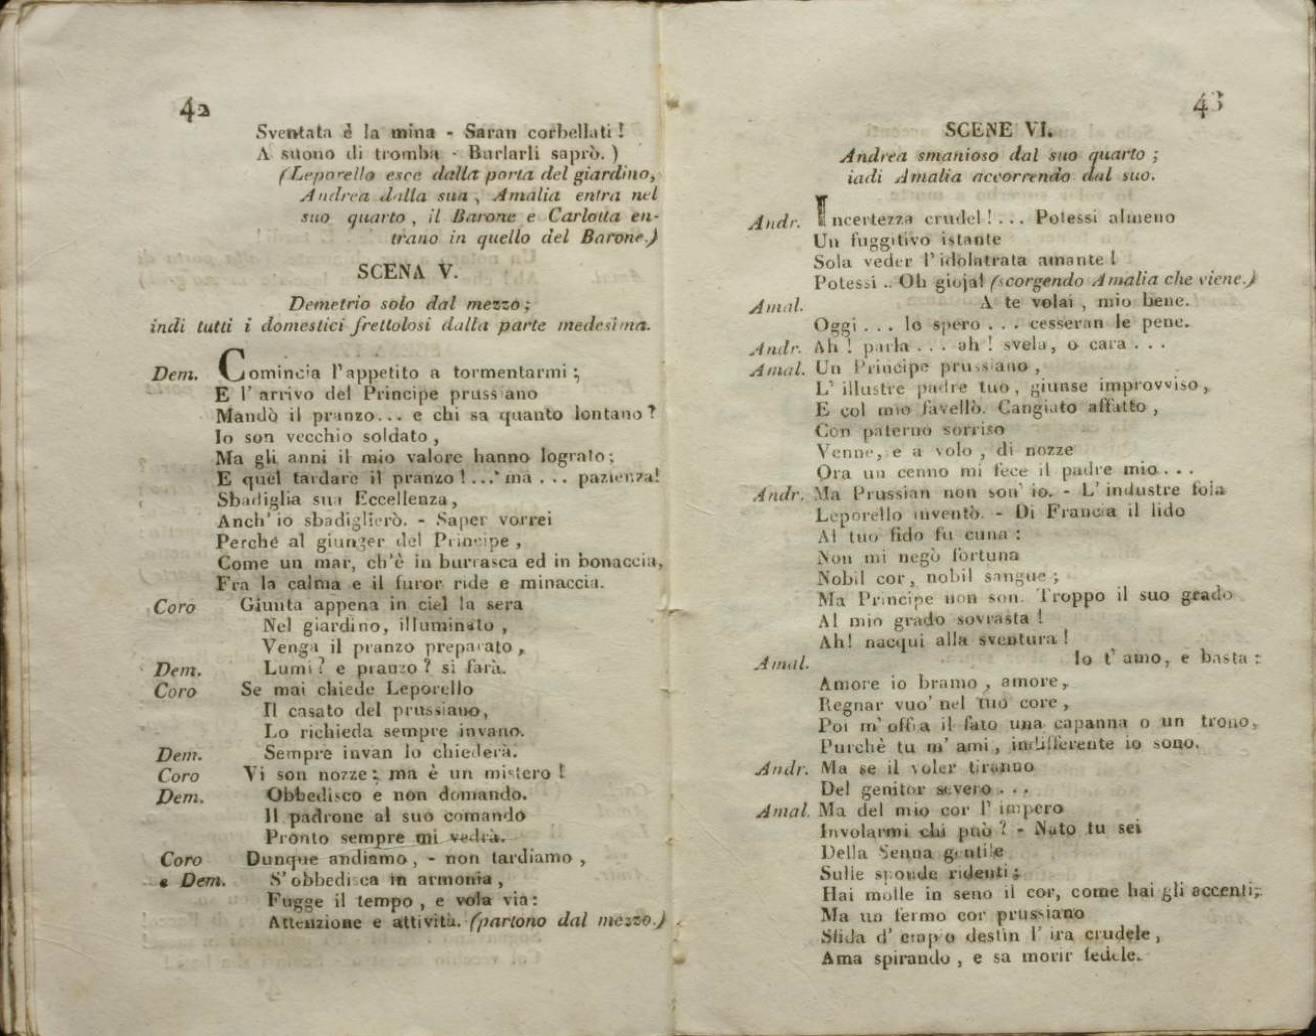 42
Sventata è la mina - Saran corbellati !
A suono di tromba - Burlarli saprò. )
(Leporello esce dalla porta del giardino,
Andrea dalla sua, Amalia entra nel
suo quarto, il Barone e Carlotta en-
trano in quello del Barone.)
SCENA V.
Demetrio solo dal mezzo;
indi tutti i domestici frettolosi dalla parte medesima.
Dem. Comincia l'appetito a tormentarmi;
E l'arrivo del Principe prussiano
Mandò il pranzo... e chi sa quanto lontano?
Io son vecchio soldato,
Ma gli anni il mio valore hanno lograto;
E quel tardare il pranzo!... ma ... pazienza!
Sbadiglia sua Eccellenza,
Anch' io sbadiglierò. - Saper vorrei
Perchè al giunger del Principe,
Come un mar, ch'è in burrasca ed in bonaccia,
Fra la calma e il furor ride e minaccia.
Coro Giunta appena in ciel la sera
Nel giardino, illuminato,
Venga il pranzo preparato,
Dem. Lumi? e pranzo? si farà.
Coro Se mai chiede Leporello
Il casato del prussiano,
Lo richieda sempre invano.
Dem. Sempre invan lo chiederà.
Coro Vi son nozze; ma è un mistero!
Dem. Obbedisco e non domando.
Il padrone al suo comando
Pronto sempre mi vedrà.
Coro Dunque andiamo, - non tardiamo,
e Dem. S'obbedisca in armonia,
Fugge il tempo, e vola via:
Attenzione e attività. (partono dal mezzo.)
43
SCENE VI.
Andrea smanioso dal suo quarto;
iadi Amalia accorrendo dal suo.
Andr. Incertezza crudel!... Potessi almeno
Un fuggitivo istante
Sola veder l'idolatrata amante!
Potessi .. Oh gioja! (scorgendo Amalia che viene.)
Amal. A te volai, mio bene.
Oggi... lo spero... cesseran le pene.
Andr. Ah! parla... ah! svela, o cara...
Amal. Un Principe prussiano,
L'illustre padre tuo, giunse improvviso,
E col mio favellò. Cangiato affatto,
Con paterno sorriso
Venne, e a volo, di nozze
Ora un cenno mi fece il padre mio...
Andr. Ma Prussian non son' io. - L'industre fola
Leporello inventò. - Di Francia il lido
Al tuo fido fu cuna:
Non mi negò fortuna
Nobil cor, nobil sangue;
Ma Principe non son. Troppo il suo grado
Al mio grado sovrasta!
Ah! nacqui alla sventura!
Amal. Io t'amo, e basta:
Amore io bramo, amore,
Regnar vuo' nel tuo core,
Poi m'offra il fato una capanna o un trono,
Purchè tu m'ami, indifferente io sono.
Andr. Ma se il voler tiranno
Del genitor severo...
Amal. Ma del mio cor l'impero
Involarmi chi può? - Nato tu sei
Della Senna gentile
Sulle sponde ridenti;
Hai molle in seno il cor, come hai gli accenti;
Ma un fermo cor prussiano
Sfida d'empio destin l'ira crudele,
Ama spirando, e sa morir fedele.